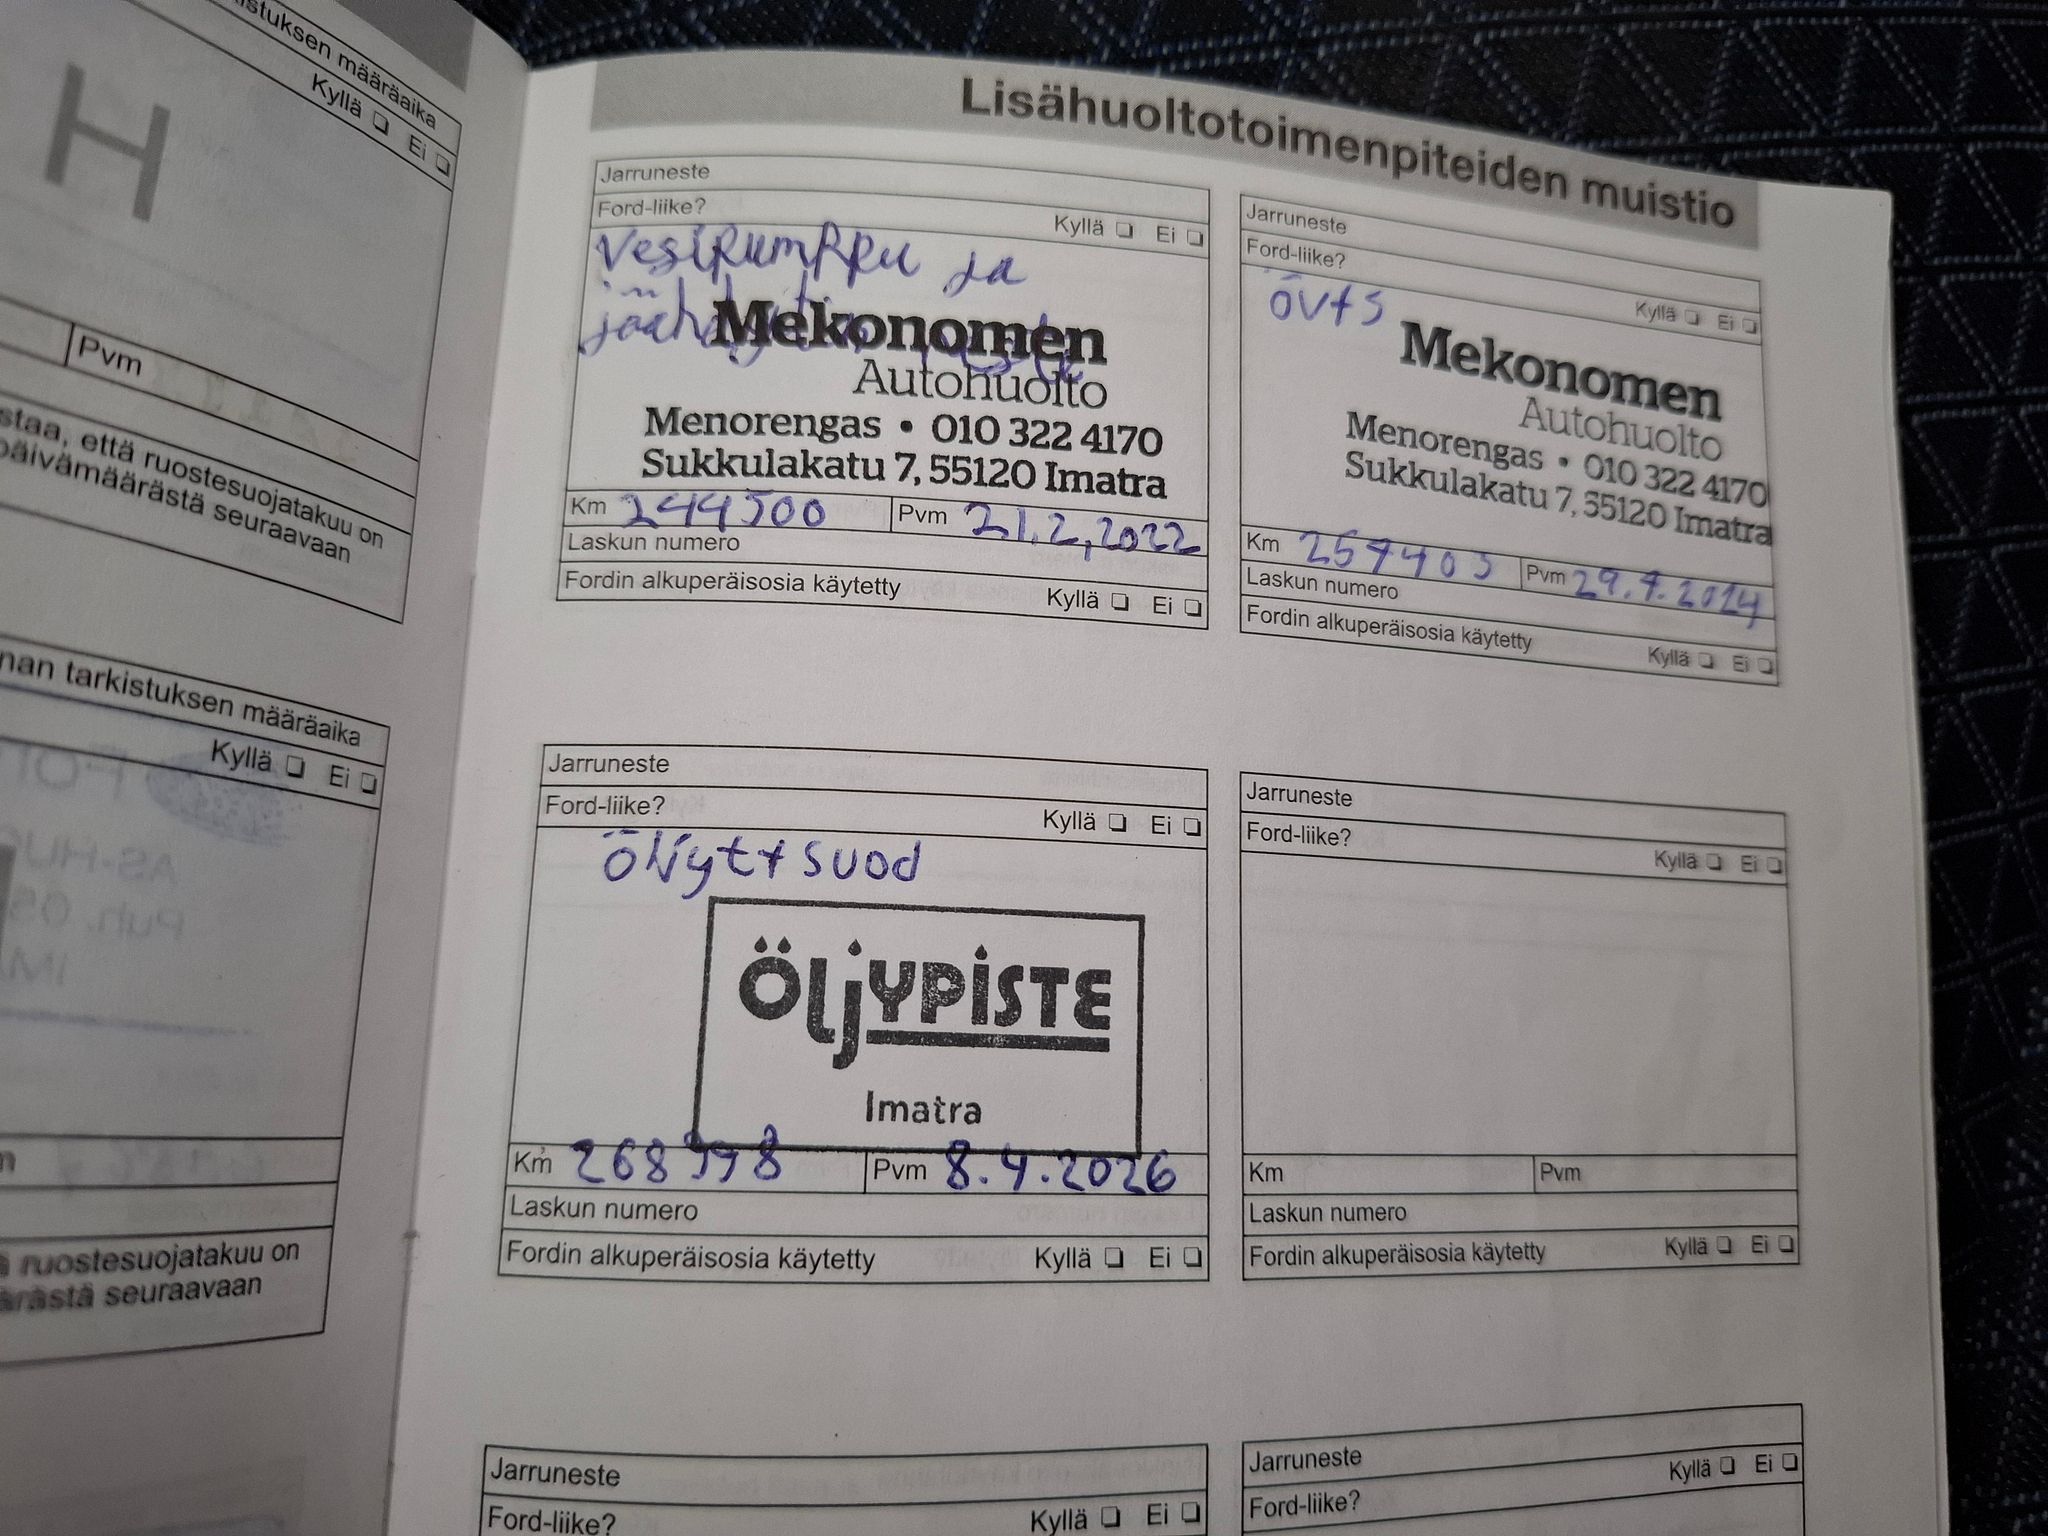 tuksen määräaika
Kyllä ❏ Ei ❏
H
Pvm
staa, että ruostesuojatakuu on
päivämäärästä seuraavaan
nan tarkistuksen määräaika
Kyllä ❏ Ei ❏
ä ruostesuojatakuu on
ärästä seuraavaan
Lisähuoltotoimenpiteiden muistio
Jarruneste
Ford-liike?
Kyllä ❏ Ei ❏
Vesipumppu ja
Mekonomen
Autohuolto
Menorengas • 010 322 4170
Sukkulakatu 7, 55120 Imatra
Km 244500 Pvm 21.2,2022
Laskun numero
Fordin alkuperäisosia käytetty Kyllä ❏ Ei ❏
Jarruneste
Ford-liike?
Kyllä ❏ Ei ❏
Mekonomen
Autohuolto
Menorengas • 010 322 4170
Sukkulakatu 7, 55120 Imatra
Km Pvm
Laskun numero
Fordin alkuperäisosia käytetty
Kyllä ❏ Ei ❏
Jarruneste
Ford-liike? Kyllä ❏ Ei ❏
Öljyt+suod
ÖLJYPISTE
Imatra
Km Pvm 8.4.2026
Laskun numero
Fordin alkuperäisosia käytetty Kyllä ❏ Ei ❏
Jarruneste
Ford-liike?
Kyllä ❏ Ei ❏
Km Pvm
Laskun numero
Fordin alkuperäisosia käytetty Kyllä ❏ Ei ❏
Jarruneste
Ford-liike? Kyllä ❏ Ei ❏
Jarruneste
Ford-liike? Kyllä ❏ Ei ❏